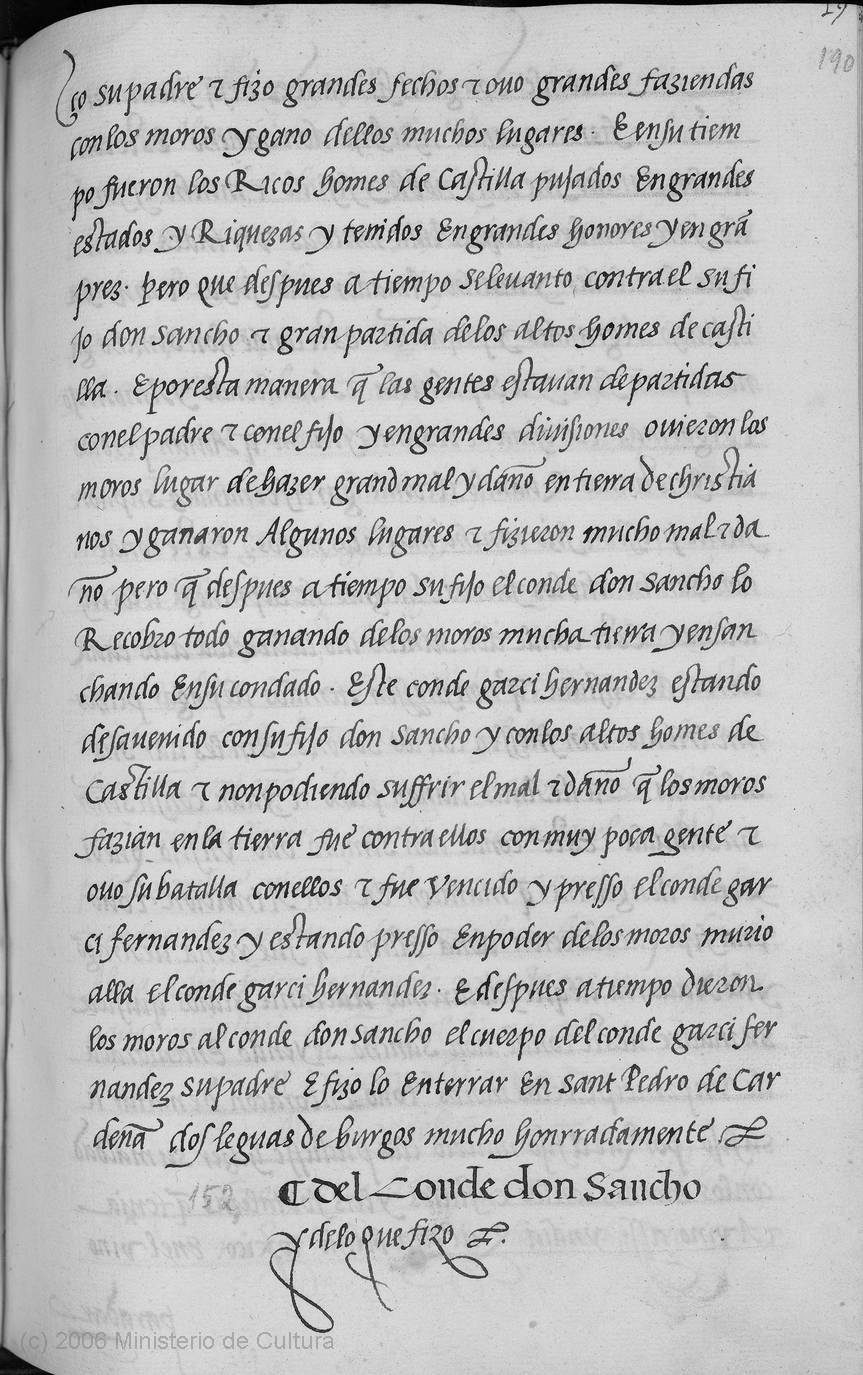 19
190
ço su padre τ fizo grandes fechos τ ouo grandes faziendas
con los moros y gano dellos muchos lugares. E en su tiem
po fueron los Ricos homes de Castilla pujados En grandes
estados y Riquezas y tenidos En grandes honores y en grã
prez. pero que despues a tiempo se leuanto contra el su fi
jo don sancho τ gran partida de los altos homes de casti
lla. E por esta manera q̃ las gentes estauan departidas
con el padre τ con el fijo y en grandes diuisiones ouieron los
moros lugar de hazer grand mal y daño en tierra de christia
nos y ganaron Algunos lugares τ fizieron mucho mal τ da
ño pero q̃ despues a tiempo su fijo el conde don sancho lo
Recobro todo ganando de los moros mucha tierra y ensan
chando En su condado. Este conde garci hernandez estando
desauenido con su fijo don sancho y con los altos homes de
Castilla τ non podiendo suffrir el mal τ daño q̃ los moros
fazian en la tierra fue contra ellos con muy poca gente τ
ouo su batalla con ellos τ fue vencido y presso el conde gar
ci fernandez y estando presso En poder de los moros murio
alla el conde garci hernandez. E despues a tiempo dieron
los moros al conde don sancho el cuerpo del conde garci fer
nandez su padre E fizo lo Enterrar En sant Pedro de Car
deña dos leguas de burgos mucho honrradamente
152
¶ del Conde don Sancho
y de lo que fizo
(c) 2006 Ministerio de Cultura